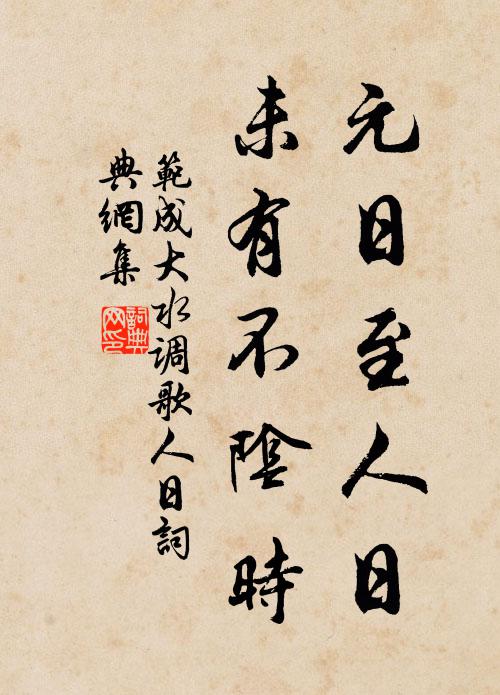 元日至人日
未有不陰時
範成大水调歌人日詞
典網集
詞典网印